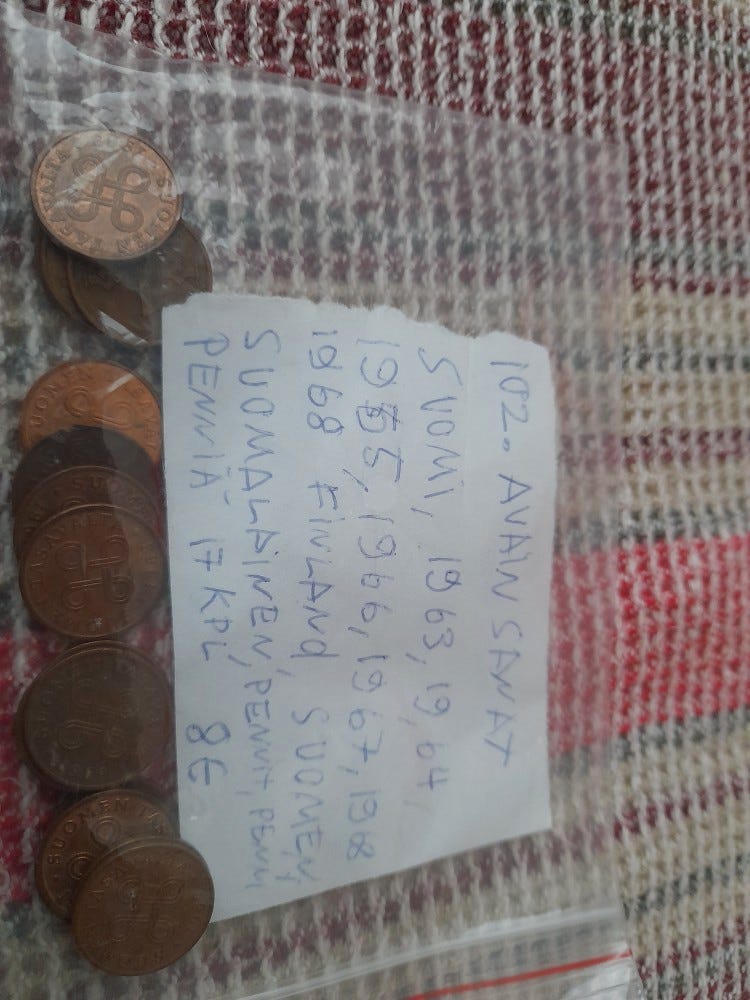 102. AVAIN SANAT
SUOMI, 1963, 19,64,
1965, 1966, 1967, 198
1968 FINLAND, SUOMEN,
SUOMALAINEN, PENNIT, PENNI,
PENNIÄ 17 KPL 8E
SUOMEN TASAVALTA